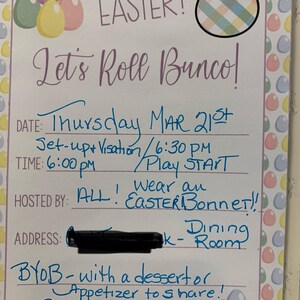 EASTER!
Let's Roll Bunco!
DATE: Thursday MAR 21st
Set-up + Visation / 6:30 PM
TIME: 6:00 pm / Play START
HOSTED BY: ALL! Wear an
EASTER Bonnet!!
ADDRESS: k - Dining
Room
BYOB - with a dessert or
Appetizer to share!